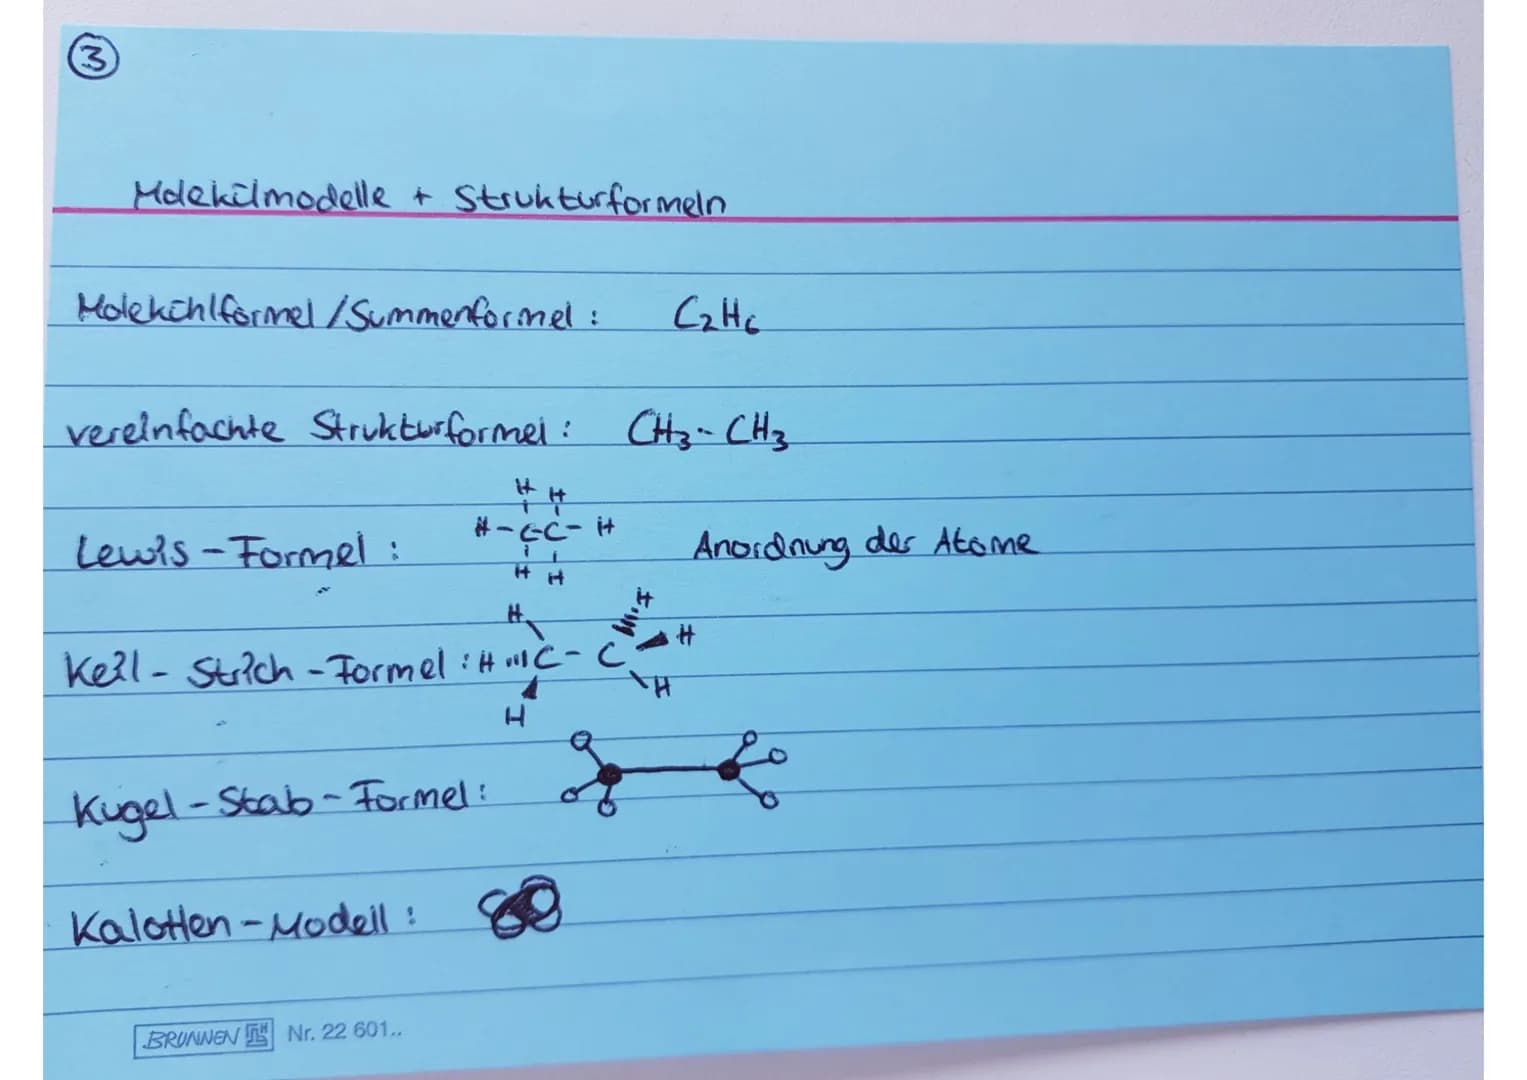 3
Molekülmodelle + Strukturformeln
Molekühlformel / Summenformel : C₂H₆
vereinfachte Strukturformel : CH₃ - CH₃
H H
Lewis - Formel : H - C-C - H Anordnung der Atome
H H
H H
Keil - Strich - Formel : H C - C H
H H
Kugel - Stab - Formel :
Kalotten - Modell :
BRUNNEN Nr. 22 601..